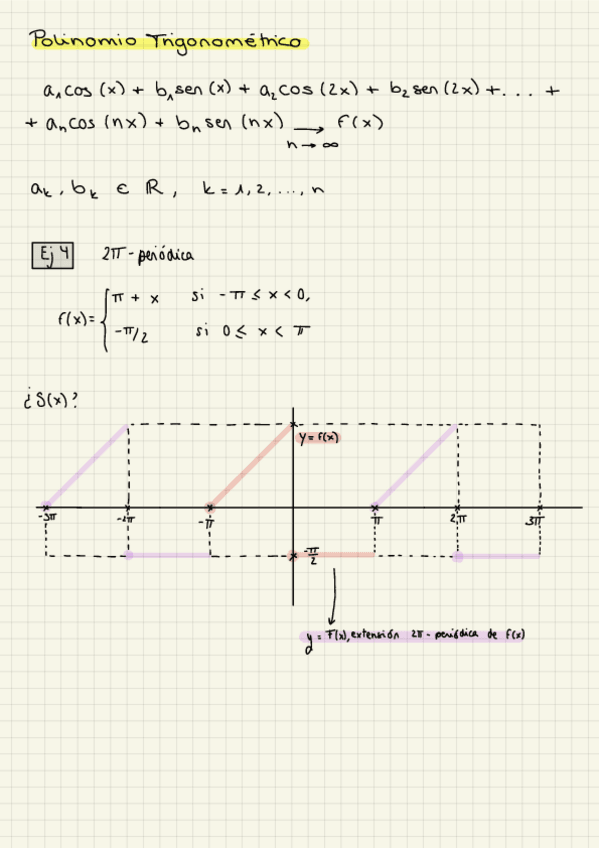 Polinomio Trigonométrico
a₁cos (x) + b₁sen (x) + a₂ cos (2x) + b₂ sen (2x) + . . . +
+ aₙ cos (nx) + bₙ sen (nx) → f(x)
n → ∞
aₖ , bₖ ∈ ℝ , k = 1, 2, ..., n
Ej 4 2π - periódica
f(x) = { π + x si - π ≤ x < 0,
-π/2 si 0 ≤ x < π
¿S(x)?
y = f(x)
-3π -2π -π π 2π 3π
-π/2
y = F(x), extensión 2π - periódica de f(x)